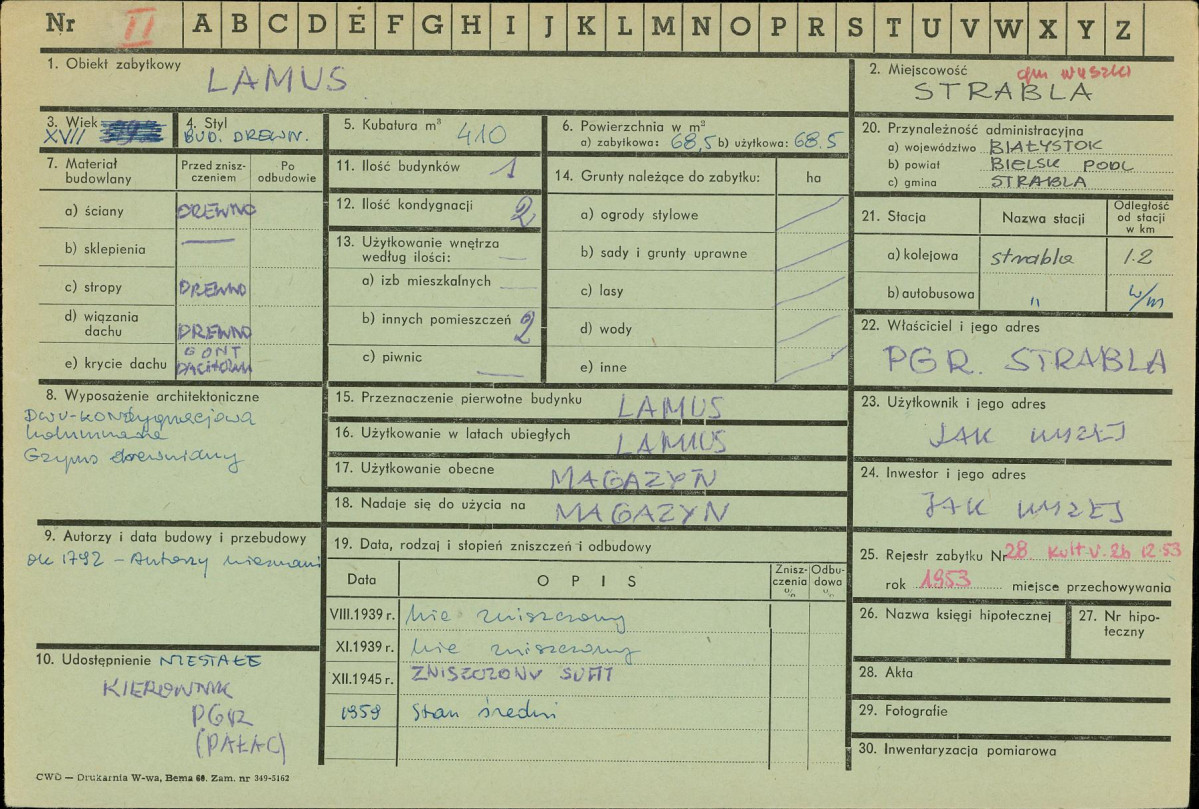 Nr II A B C D E F G H I J K L M N O P R S T U V W X Y Z
1. Obiekt zabytkowy
LAMUS
2. Miejscowość
gm Wyszki
STRABLA
3. Wiek
XVII
4. Styl
BUD. DREWN.
5. Kubatura m³ 410
6. Powierzchnia w m²
a) zabytkowa: 68,5 b) użytkowa: 68.5
7. Materiał budowlany
Przed zniszczeniem
Po odbudowie
a) ściany DREWNO
b) sklepienia —
c) stropy DREWNO
d) wiązania dachu DREWNO
e) krycie dachu GONT
DACHÓWKA
8. Wyposażenie architektoniczne
Dwu-kondygnacjowa
kolumnada
Gzyms drewniany
9. Autorzy i data budowy i przebudowy
ok 1792 – Autorzy nieznani
10. Udostępnienie NIESTAŁE
KIEROWNIK
PGR
(PAŁAC)
11. Ilość budynków 1
12. Ilość kondygnacji 2
13. Użytkowanie wnętrza
według ilości: —
a) izb mieszkalnych —
b) innych pomieszczeń 2
c) piwnic —
14. Grunty należące do zabytku: ha
a) ogrody stylowe
b) sady i grunty uprawne
c) lasy
d) wody
e) inne
15. Przeznaczenie pierwotne budynku LAMUS
16. Użytkowanie w latach ubiegłych LAMUS
17. Użytkowanie obecne MAGAZYN
18. Nadaje się do użycia na MAGAZYN
19. Data, rodzaj i stopień zniszczeń i odbudowy
Data
OPIS
Zniszczenia %
Odbudowa %
VIII.1939 r. Nie zniszczony
XI.1939 r. Nie zniszczony
XII.1945 r. ZNISZCZONY SUFIT
1959 Stan średni
20. Przynależność administracyjna
a) województwo BIAŁYSTOK
b) powiat BIELSK PODL
c) gmina STRABLA
21. Stacja
Nazwa stacji
Odległość od stacji w km
a) kolejowa strabla 1.2
b) autobusowa " w/m
22. Właściciel i jego adres
PGR. STRABLA
23. Użytkownik i jego adres
JAK WYŻEJ
24. Inwestor i jego adres
JAK WYŻEJ
25. Rejestr zabytku Nr 28 Kult V. 2b 12 53
rok 1953 miejsce przechowywania
26. Nazwa księgi hipotecznej
27. Nr hipoteczny
28. Akta
29. Fotografie
30. Inwentaryzacja pomiarowa
CWD — Drukarnia W-wa, Bema 60. Zam. nr 349-5162